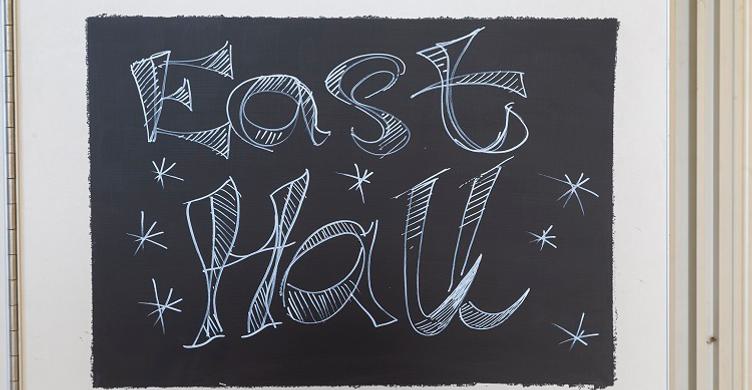 East
Hall